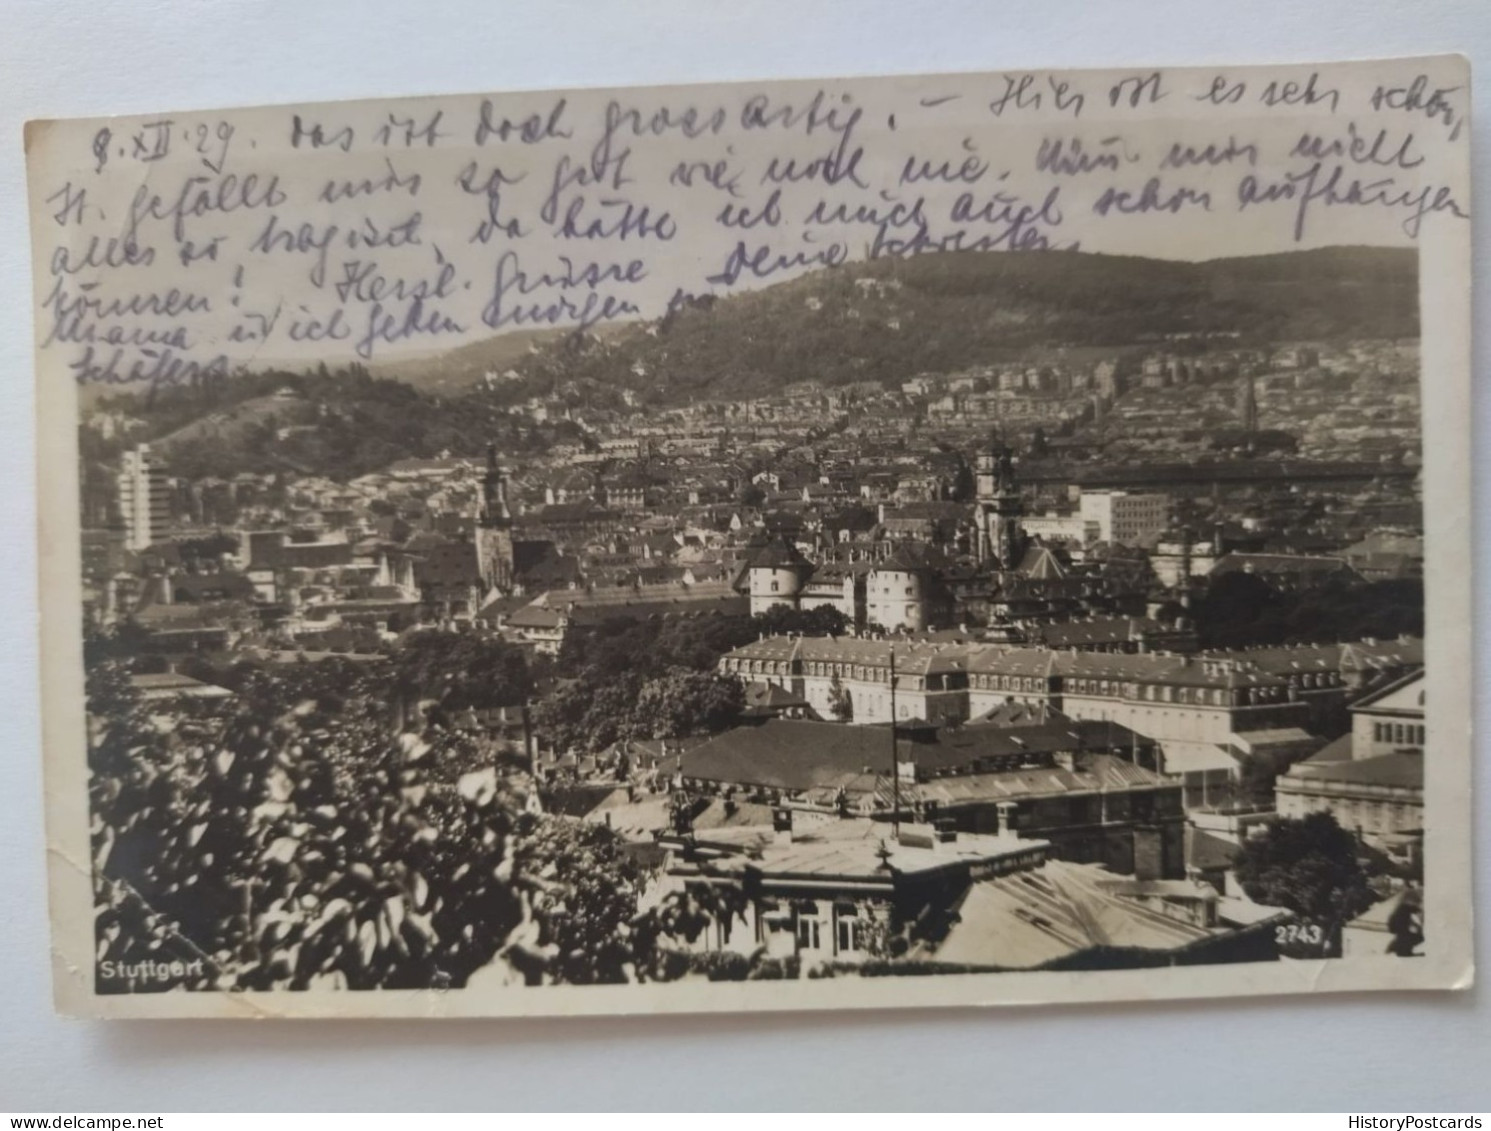 9.XII.29. Das ist doch grossartig. – Hier ist es sehr schön,
St. gefällt mir so gut wie noch nie. Nur mir nicht
alles so tragisch, da hätte ich mich auch schon aufhängen
können! Herzl. Grüsse Deine Schwester.
Mama u. ich gehen morgen zu
Schäfers
Stuttgart
2743
HistoryPostcards
delcampe.net